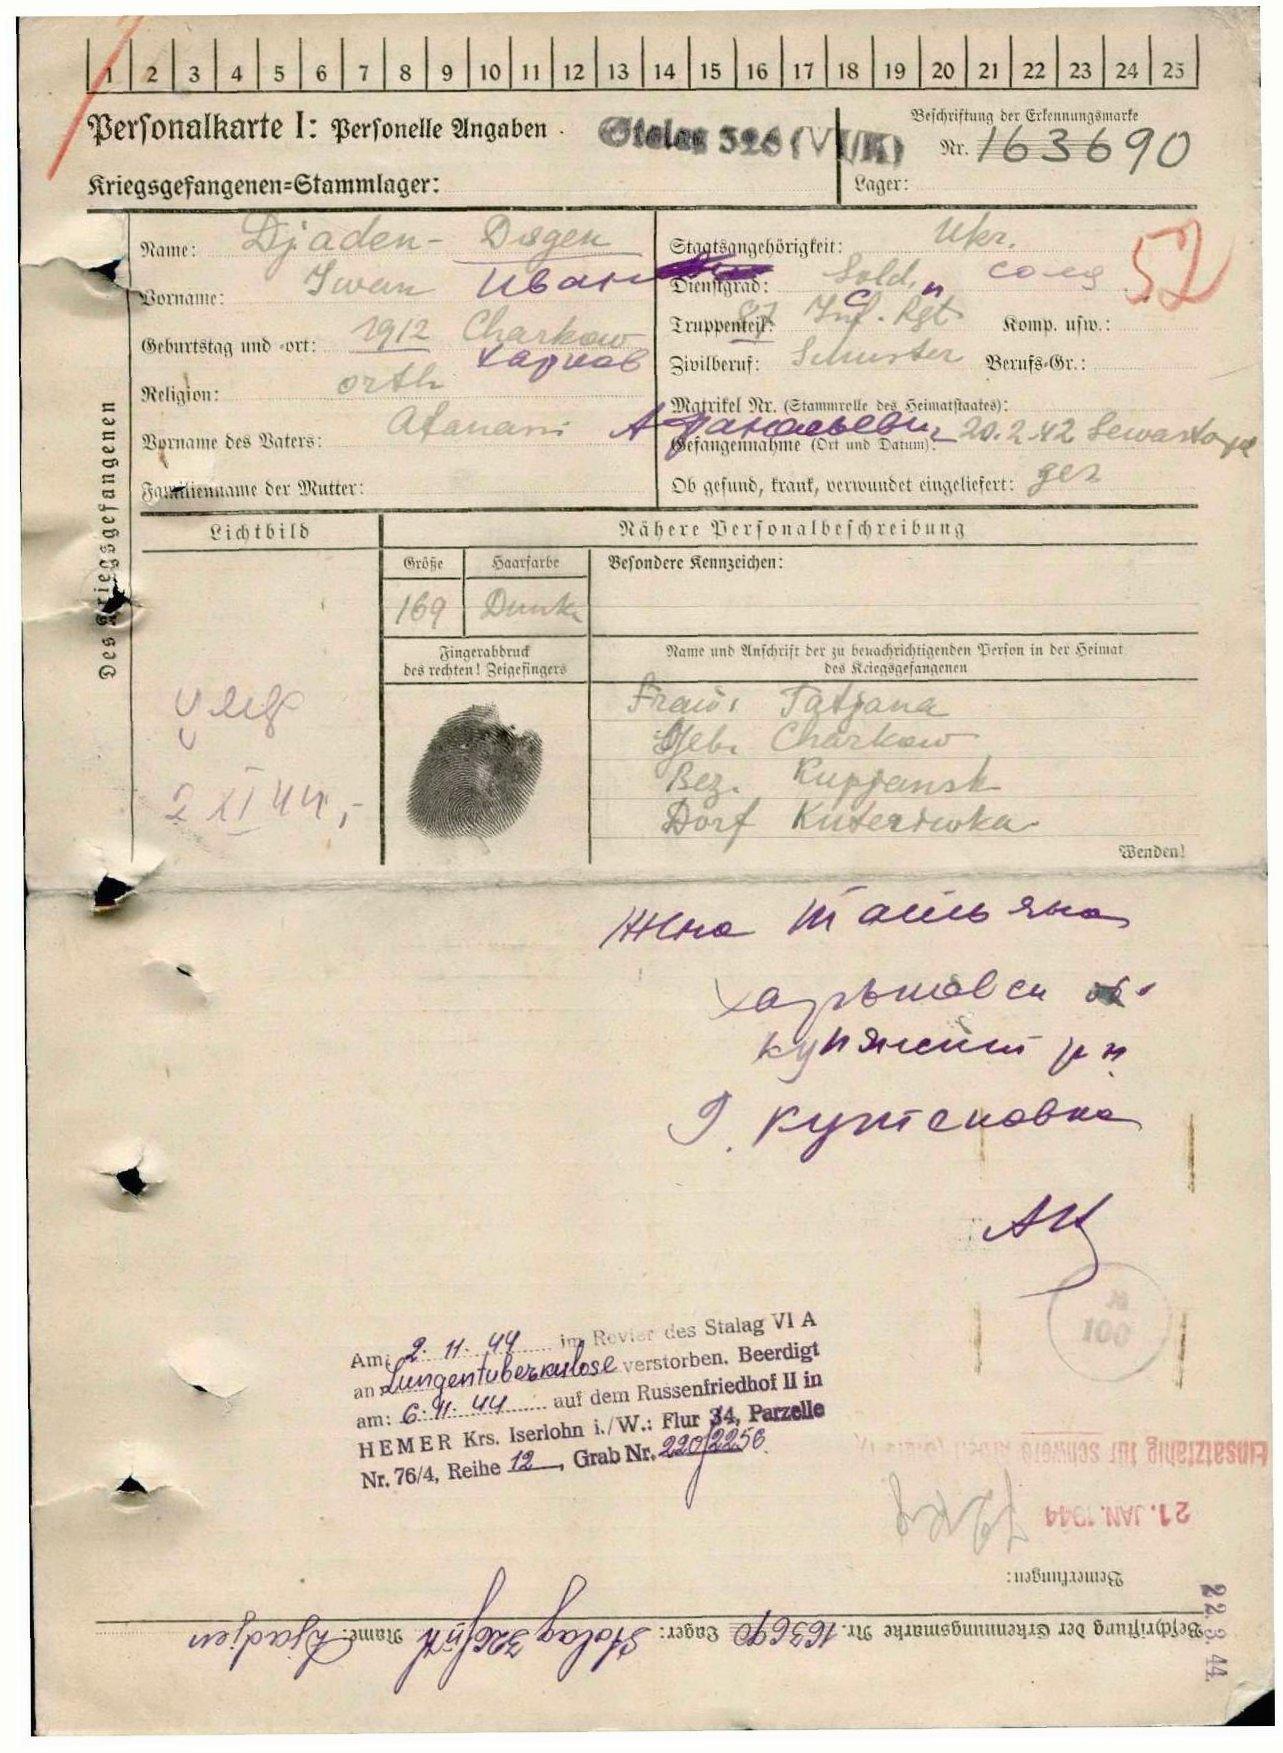 1 2 3 4 5 6 7 8 9 10 11 12 13 14 15 16 17 18 19 20 21 22 23 24 25
Personalkarte I: Personelle Angaben
Stalag 326 (VI/K)
Beschriftung der Erkennungsmarke
Nr. 163690
Kriegsgefangenen=Stammlager:
Lager:
Des Kriegsgefangenen
Name: Djaden-
Vorname: Iwan Иван
Geburtstag und -ort: 1912 Charkow
Харков
Religion: orth
Vorname des Vaters: Afanasi Афанасьевич
Familienname der Mutter:
Staatsangehörigkeit: Ukr.
52
Dienstgrad: Sold. солд
Truppenteil: 87 Inf. Rgt. Komp. usw.:
Zivilberuf: Schuster Berufs-Gr.:
Matrikel Nr. (Stammrolle des Heimatstaates):
Gefangennahme (Ort und Datum): 20.2.42 Sewastopol
Ob gesund, krank, verwundet eingeliefert: ges
Lichtbild
Nähere Personalbeschreibung
Größe Haarfarbe Besondere Kennzeichen:
169 Dunk
Fingerabdruck
des rechten! Zeigefingers
Name und Anschrift der zu benachrichtigenden Person in der Heimat
des Kriegsgefangenen
Frau: Tatjana
Geb. Charkow
Bez. Kupjansk
Dorf
2 XI 44
Wenden!
Жна Татьяна
Харьковск об.
купянский р н
Am: 2. 11. 44 im Revier des Stalag VI A
an Lungentuberkulose verstorben. Beerdigt
am: 6. 11. 44 auf dem Russenfriedhof II in
HEMER Krs. Iserlohn i./W.: Flur 34, Parzelle
Nr. 76/4, Reihe 12, Grab Nr. 220/2256
100
Einsatzfähig für schwere
21. JAN. 1944
Bemerkungen:
22.3.44.
Beschriftung der Erkennungsmarke Nr. 163690 Lager: Stalag 326 Name: Djadjen